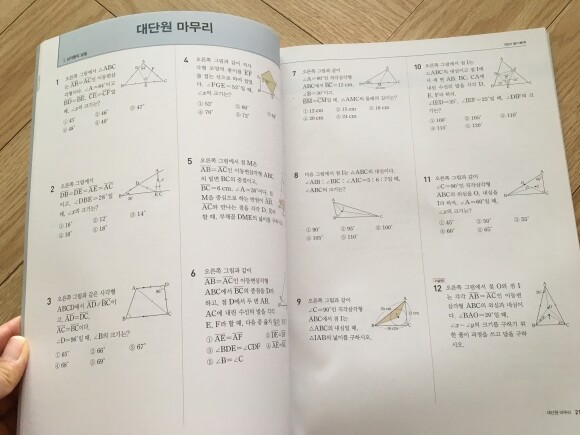 대단원 마무리
1 오른쪽 그림에서 △ABC
는 AB=AC인 이등변삼
각형이다. ∠A=44°이고
BD=BE, CE=CF일
때, ∠x의 크기는?
① 45° ② 46° ③ 47°
④ 48° ⑤ 49°
2 오른쪽 그림에서
DB=DE=AE=AC
이고, ∠DBE=28°일
때, ∠x의 크기는?
① 10° ② 12° ③ 14°
④ 16° ⑤ 18°
3 오른쪽 그림과 같은 사각형
ABCD에서 AD∥BC이
고, AD=DC,
AC=BC이다.
∠D=98°일 때, ∠B의 크기는?
① 65° ② 66° ③ 67°
④ 68° ⑤ 69°
4 오른쪽 그림과 같이 직사
각형 모양의 종이를 EF
를 접는 선으로 하여 접었
∠FGE=52°일 때,
∠x의 크기는?
① 52°
5 오른쪽 그림에서 점 M은
AB=AC인 이등변삼각형 ABC
의 밑변 BC의 중점이고,
BC=6 cm, ∠A=58°이다. 점
M을 중심으로 하는 반원이 AB,
AC와 만나는 점을 각각 D, E
할 때, 부채꼴 DME의 넓이를 구하시오.
6 오른쪽 그림과 같이
AB=AC인 이등변삼각형
ABC에서 BC의 중점을 D라
하고, 점 D에서 두 변 AB,
AC에 내린 수선의 발을 각각
E, F라 할 때, 다음 중 옳지
① AE=AF ② DE=
③ ∠BDE=∠CDF
⑤ ∠B=∠C
7 오른쪽 그림과 같이
∠A=90°인 직각삼각형
ABC에서 BC=12 cm,
∠B=30°이고,
BM=CM일 때, △AMC의 둘레의 길이는?
① 12 cm ② 15 cm ③ 18 cm
④ 20 cm ⑤ 24 cm
8 다음 그림에서 점 I는 △ABC의 내심이다.
∠AIB : ∠BIC : ∠AIC=5 : 6 : 7일 때,
∠ABC의 크기는?
① 90° ② 95° ③ 100°
④ 105° ⑤ 110°
9 오른쪽 그림과 같이
∠C=90°인 직각삼각형
ABC에서 점 I는
△ABC의 내심일 때,
△IAB의 넓이를 구하시오.
10 오른쪽 그림에서 점 I는
△ABC의 내심이고 점 I에
서 세 변 AB, BC, CA에
내린 수선의 발을 각각 D,
E, F라 하자.
∠DIF의 크
기는?
① 100° ② 105°
④ 115° ⑤ 120°
11 오른쪽 그림과 같이
∠C=90°인 직각삼각형
ABC의 외심을 O, 내심을
I라 하자. ∠A=60°일 때,
∠x의 크기는?
① 45° ② 50° ③ 55°
④ 60° ⑤ 65°
12 오른쪽 그림에서 점 O와 점 I
는 각각 AB=AC인 이등변
삼각형 ABC의 외심과 내심이
다. ∠BAO=20°일 때,
∠x-∠y의 크기를 구하기 위
한 풀이 과정을 쓰고 답을 구하
시오.
대단원 마무리